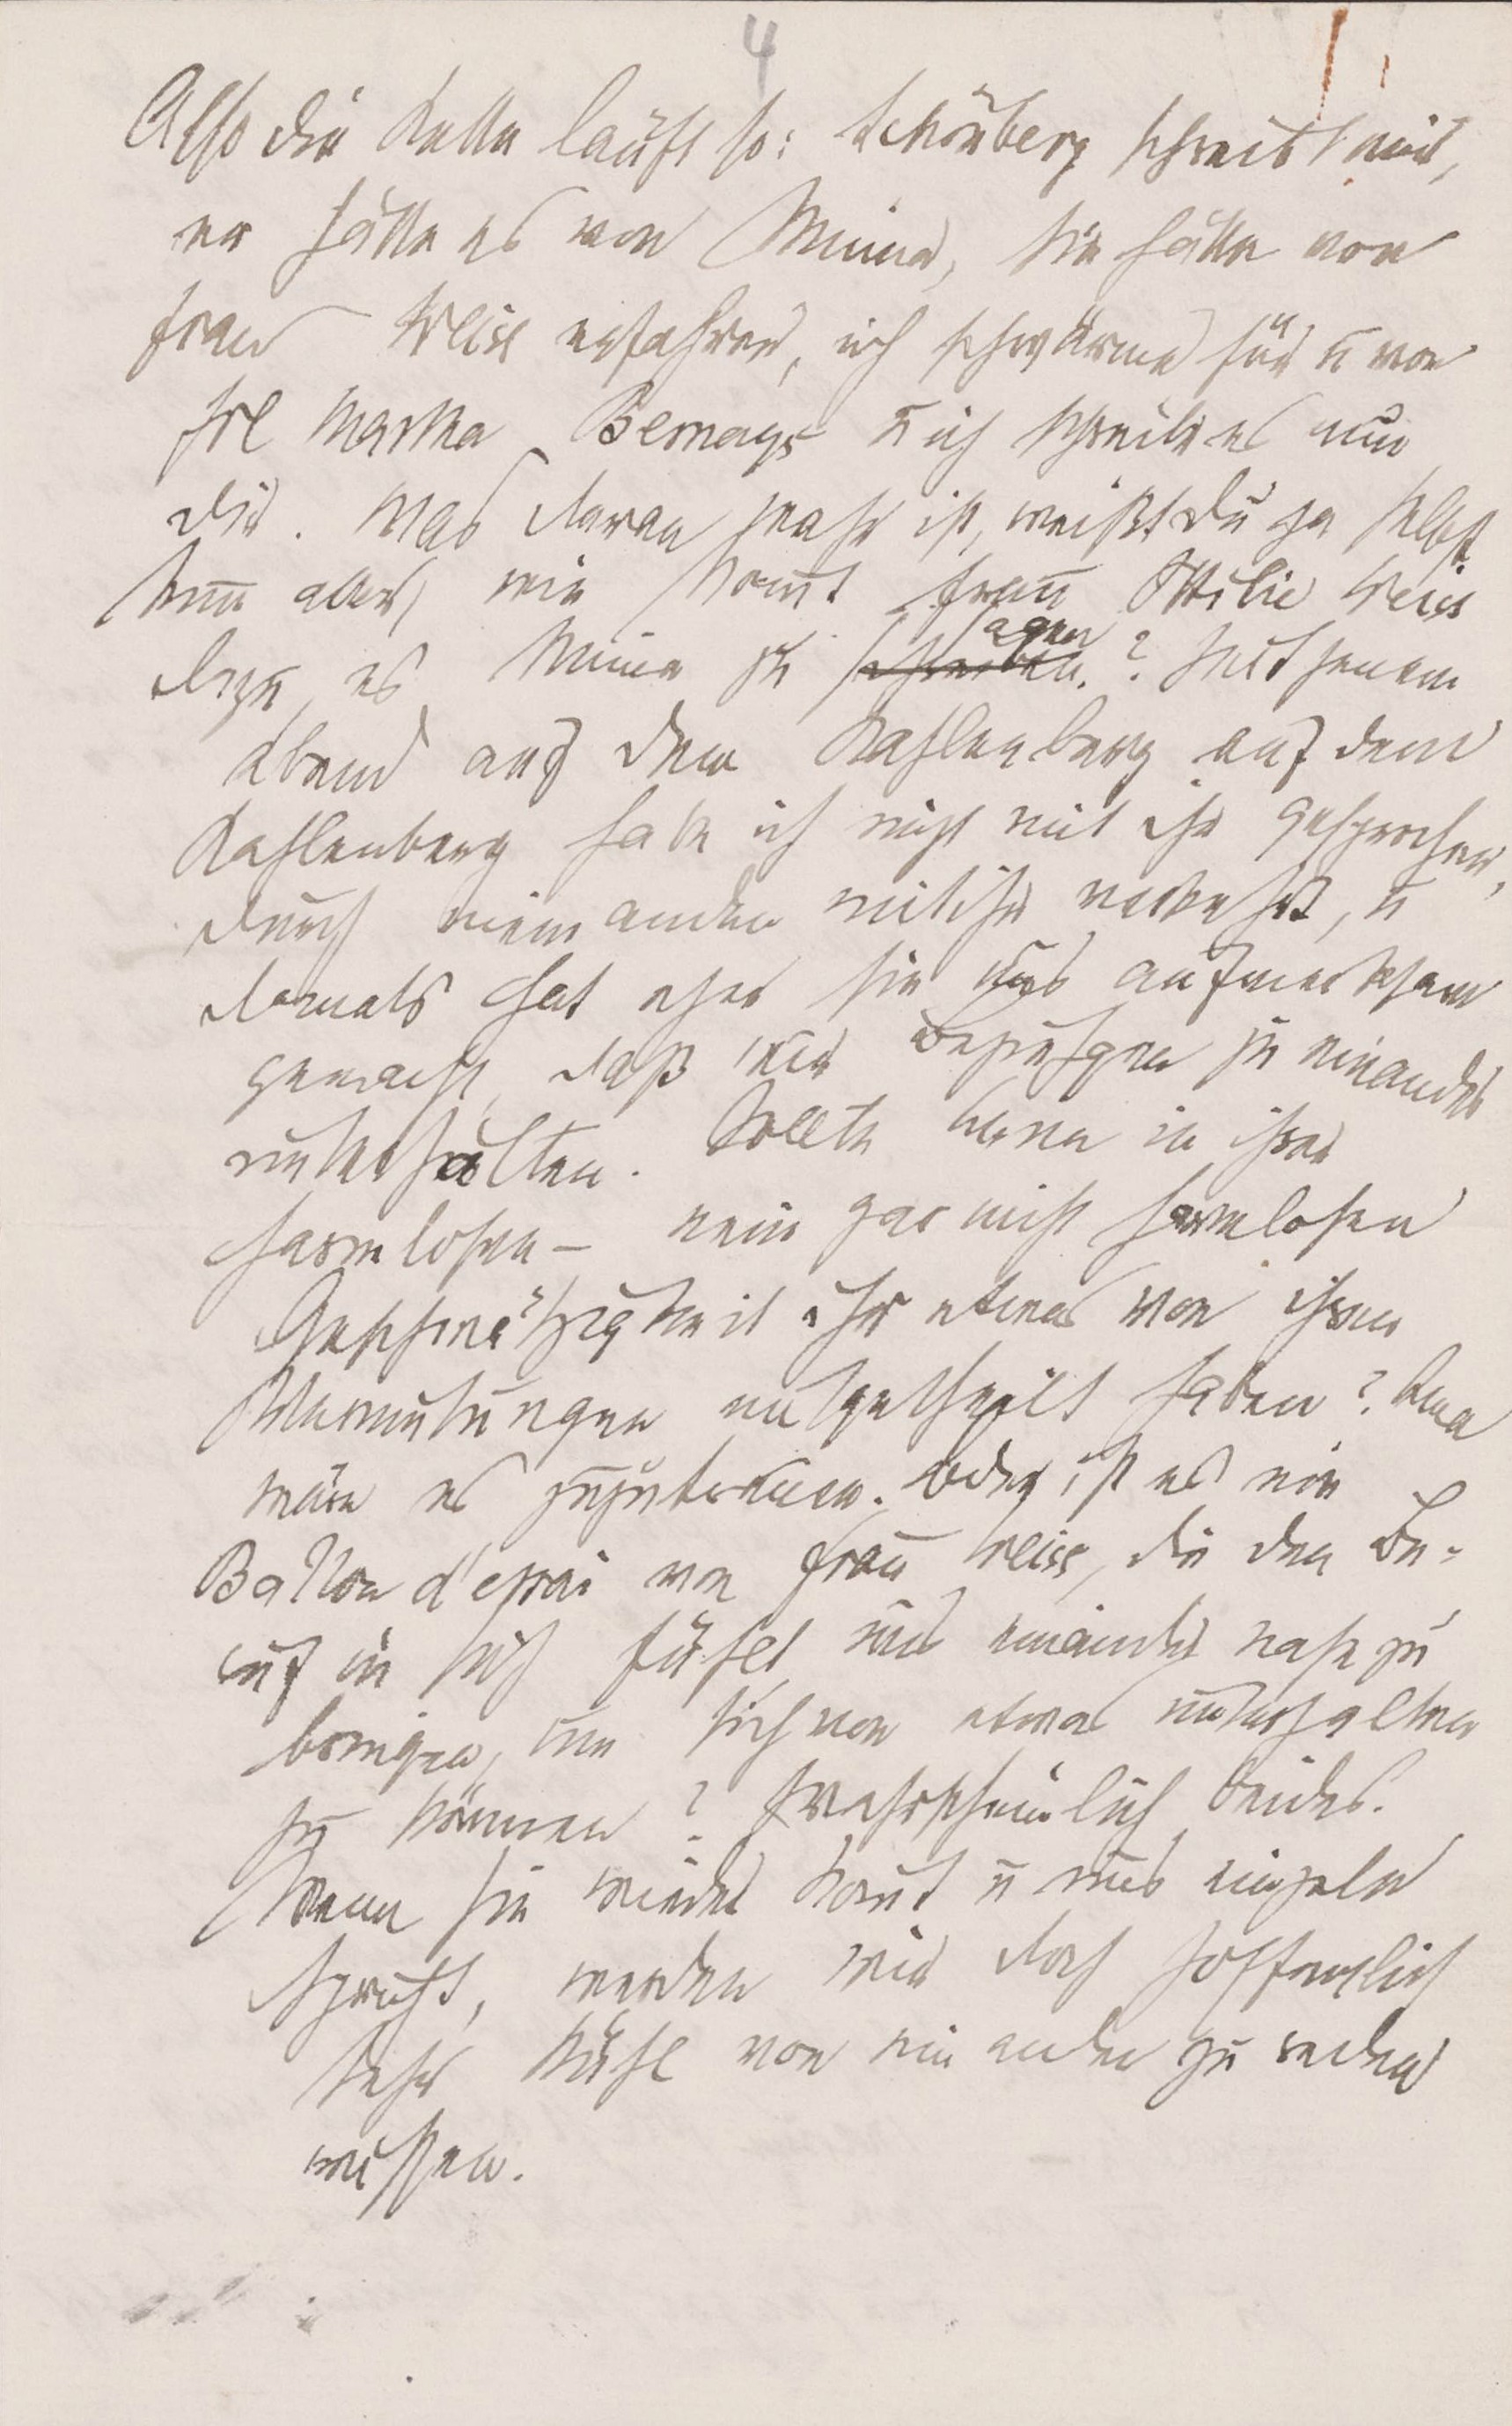 4
Also die Kette läuft so: Schönberg schreibt mir,
er hätte es von Minna, sie hätte von
Frau Weiss erfahren, ich schwärme für u von
Frl Martha Bernays u ich schreibe es nun
dir. Was daran wahr ist, weißt du ja selbst
Nun aber, wie kom̅t Frau Ottilie Weiss
dazu es Minna zu schreiben. sagen? Seit jenem
Abend auf dem Kahlenberg auf dem
Kahlenberg habe ich nicht mit ihr gesprochen,
durch niemanden mit ihr verkehrt, u
damals hat eher sie uns aufmerksam
gemacht, daß wir Beziehgen zu einander
unterhalten. Sollte in ihrer
harmlosen – nein gar nicht harmlosen
Geschwätzigkeit ihr etwas von ihren
Vermutungen mitgetheilt haben?
wäre es zuzutrauen. Oder ist es ein
Ballon d'essai von Frau Weiss, die den Be-
ruf in sich fühlt, uns einander nahe zu
bringen, um sich von etwas unterhalten
zu können? Wahrscheinlich beides.
Wenn sie wieder kom̅t u uns einzeln
spricht, werden wir doch hoffentlich
sehr kühl von einander zu reden
wissen.